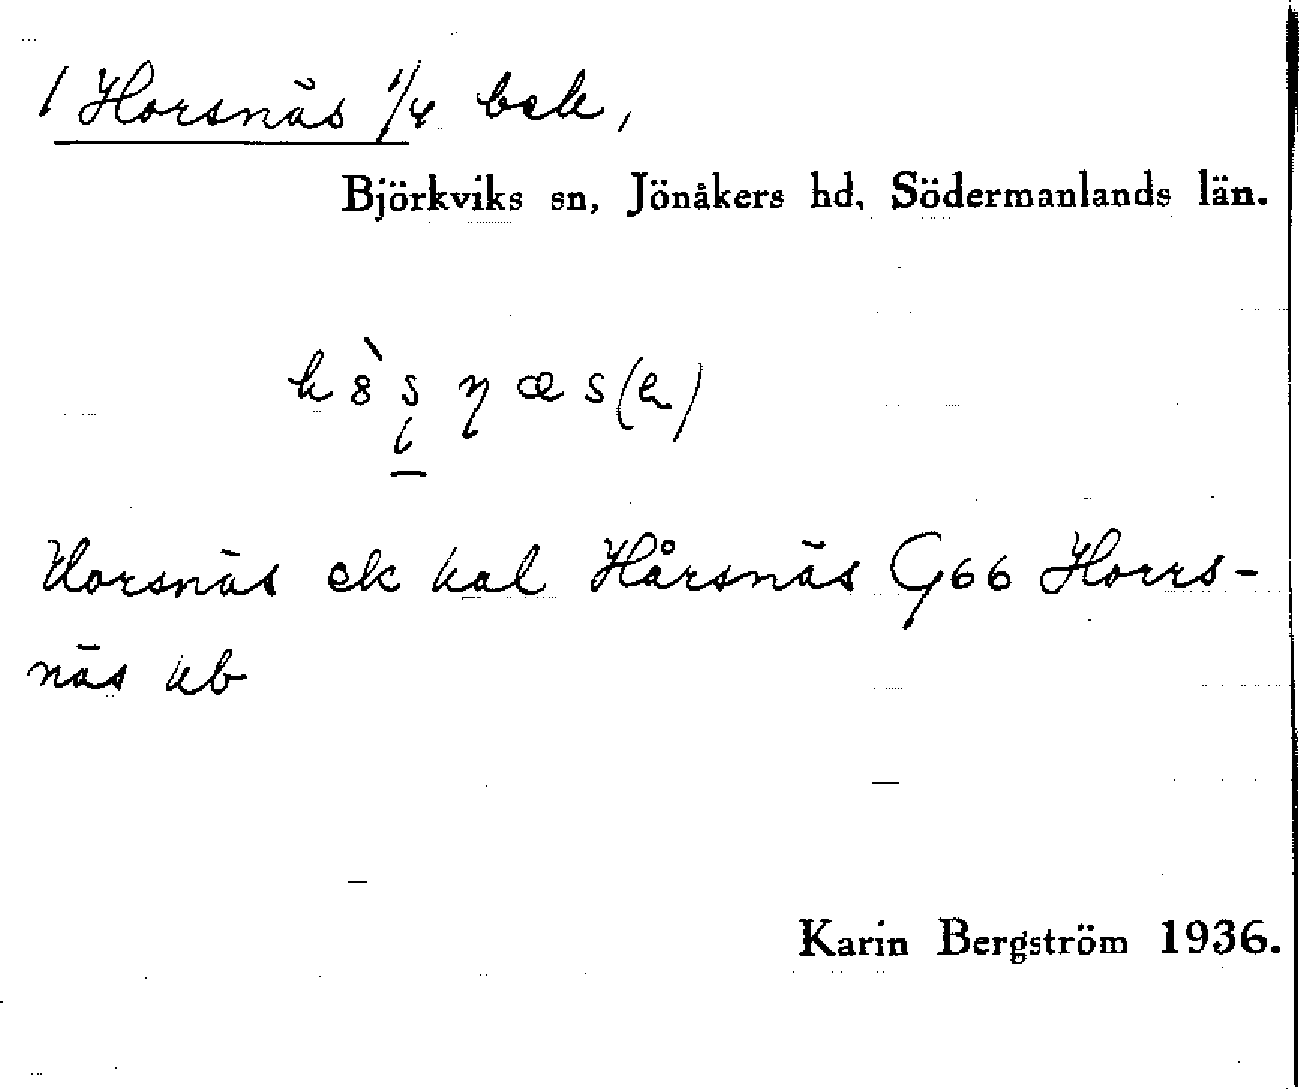 1 Horsnäs 1/4 bek,
Björkviks sn, Jönåkers hd, Södermanlands län.
Horsnäs ek kal Hårsnäs G66 Horrs-
näs kb
Karin Bergström 1936.